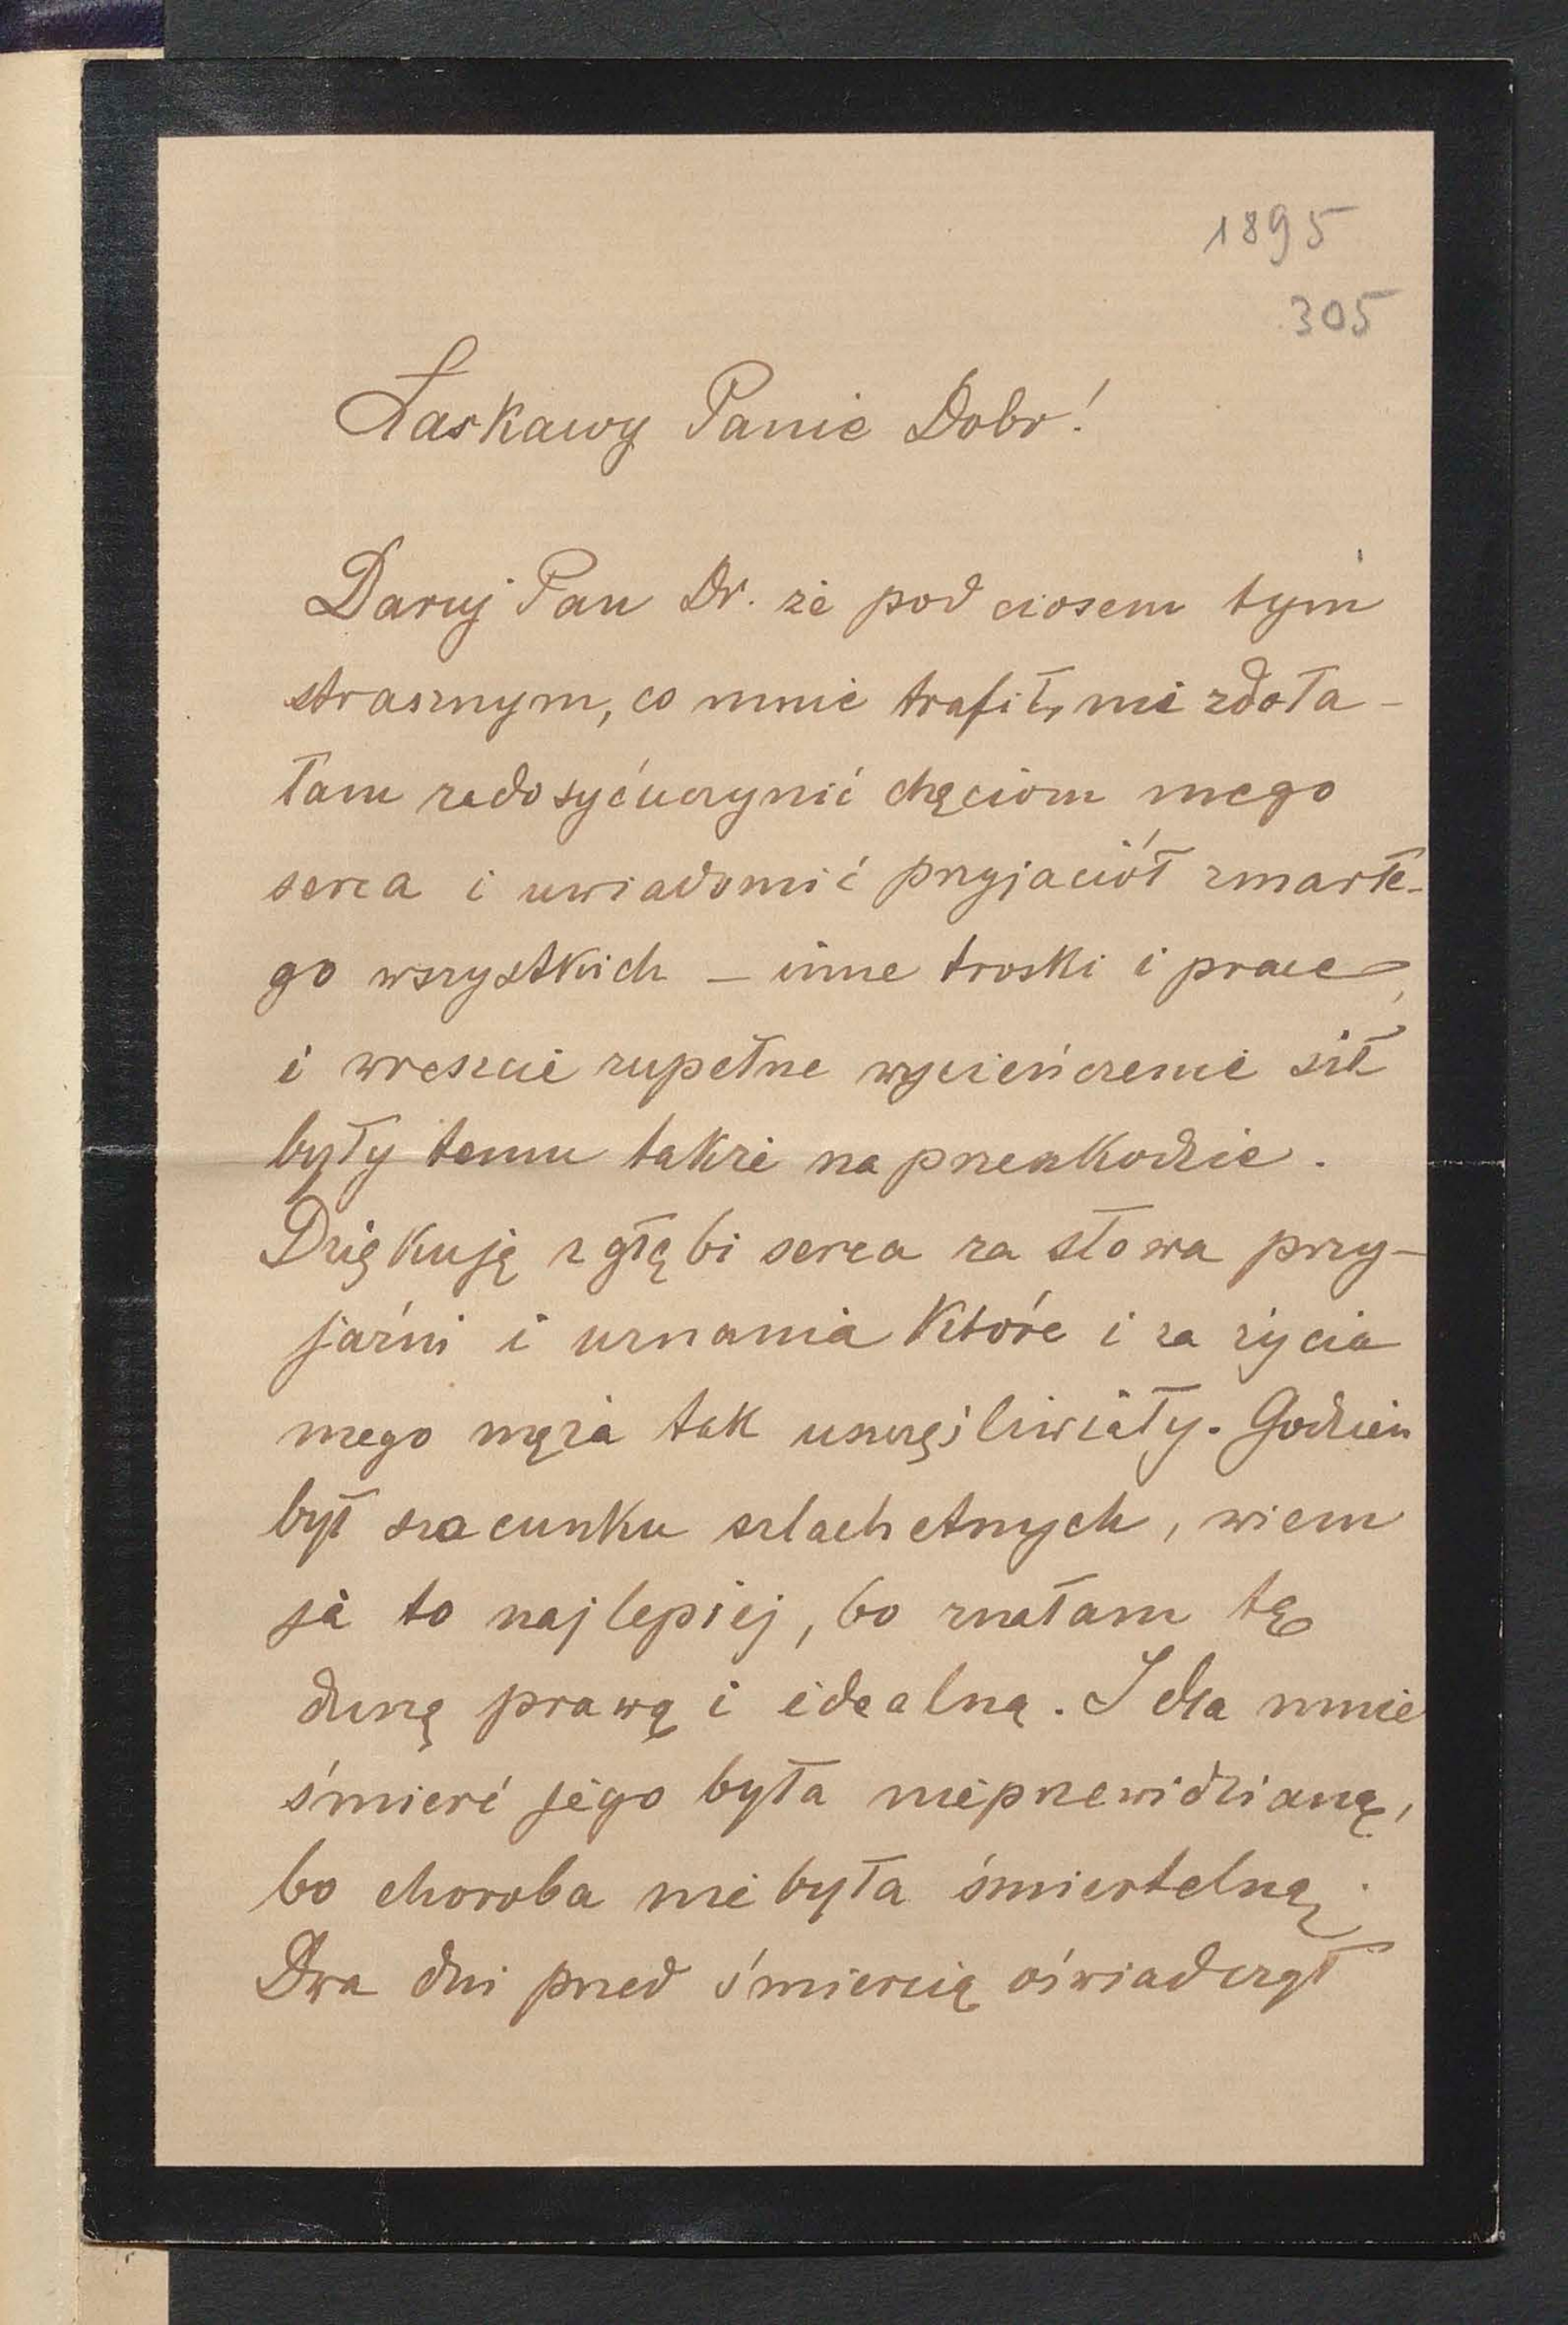 1895
305
Łaskawy Panie Dobr!
Daruj Pan Dr. że pod ciosem tym
strasznym, co mnie trafił, nie zdoła-
łam zadosyćuczynić chęciom mego
serca i uwiadomić przyjaciół zmarłe-
go wszystkich – inne troski i prace,
i wreszcie zupełne wycieńczenie sił
były temu także na przeszkodzie.
Dziękuję z głębi serca za słowa przy-
jaźni i uznania które i za życia
mego męża tak uszczęśliwiały. Godzien
był szacunku szlachetnych, wiem
ja to najlepiej, bo znałam tę
duszę prawą i idealną. I dla mnie
śmierć jego była nieprzewidzianą,
bo choroba nie była śmiertelną.
Dwa dni przed śmiercią oświadczył